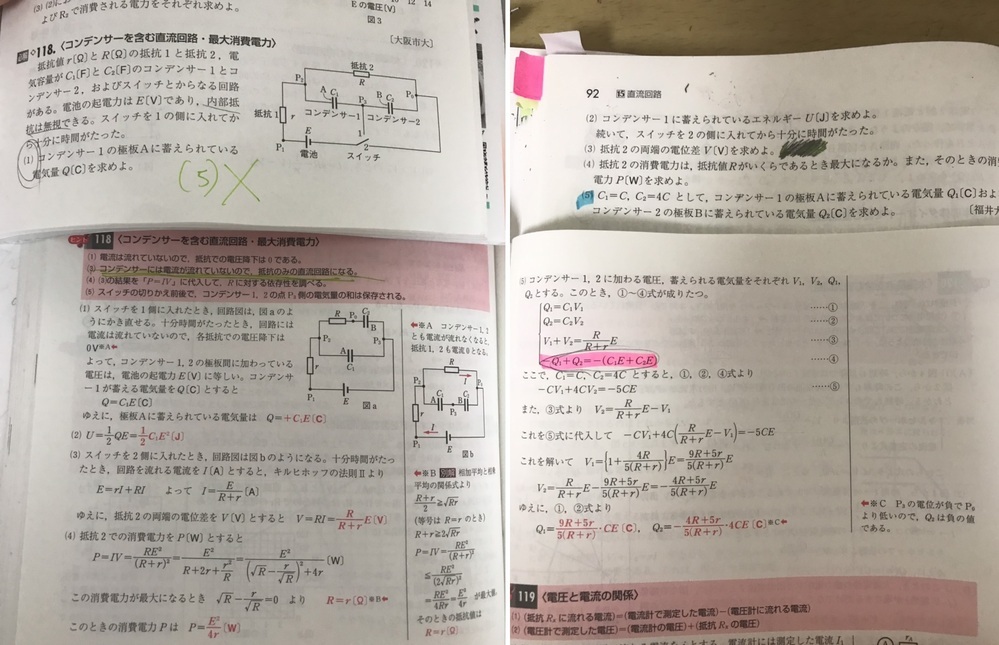 よびR₂で消費される電力をそれぞれ求めよ。
12 14
Eの電圧〔V〕
図3
118.〈コンデンサーを含む直流回路・最大消費電力〉
〔大阪市大〕
抵抗値r〔Ω〕とR〔Ω〕の抵抗1と抵抗2,電
気容量がC₁〔F〕とC₂〔F〕のコンデンサー1とコ
ンデンサー2,およびスイッチとからなる回路
がある。電池の起電力はE〔V〕であり,内部抵
抗は無視できる。スイッチを1の側に入れてか
ら十分に時間がたった。
(1) コンデンサー1の極板Aに蓄えられている
電気量Q〔C〕を求めよ。
抵抗2
R
P₂
A C₁
P₃
B C₂
コンデンサー1
コンデンサー2
抵抗1
r
E
1
2
P₁
電池
スイッチ
(5)×
ヒント 118 〈コンデンサーを含む直流回路・最大消費電力〉
(1) 電流は流れていないので,抵抗での電圧降下は0である。
(3) コンデンサーには電流が流れていないので,抵抗のみの直流回路になる。
(4) (3)の結果を「P=IV」に代入して,Rに対する依存性を調べる。
(5) スイッチの切りかえ前後で,コンデンサー1,2の点P₃側の電気量の和は保存される。
(1) スイッチを1側に入れたとき,回路図は,図aのよ
うにかき直せる。十分時間がたったとき,回路には
電流は流れていないので,各抵抗での電圧降下は
0V※A←
よって,コンデンサー1,2の極板間に加わっている
電圧は,電池の起電力E〔V〕に等しい。コンデンサ
ー1が蓄える電気量をQ〔C〕とすると
Q=C₁E〔C〕
ゆえに,極板Aに蓄えられている電気量は Q=+C₁E〔C〕
(2) U=1/2QE=1/2C₁E²〔J〕
(3) スイッチを2側に入れたとき,回路図は図bのようになる。十分時間がた
ったとき,回路を流れる電流をI〔A〕とすると,キルヒホッフの法則Ⅱより
E=rI+RI よって I=E/(R+r)〔A〕
ゆえに,抵抗2の両端の電位差をV〔V〕とすると V=RI=R/(R+r)E〔V〕
(4) 抵抗2での消費電力をP〔W〕とすると
P=IV=RE²/(R+r)²=E²/(R+2r+r²/R)=E²/((√R−r/√R)²+4r)〔W〕
この消費電力が最大になるとき √R−r/√R=0 より R=r〔Ω〕※B←
このときの消費電力Pは P=E²/4r〔W〕
図a
←※A コンデンサー1,2
とも電流が流れなくなると,
抵抗1,2も電流0となる。
図b
←※B 別解 相加平均と相乗
平均の関係式より
(R+r)/2≧√Rr
(等号はR=rのとき)
R+r≧2√Rr
P=IV=RE²/(R+r)²
≦RE²/(2√Rr)²
=RE²/4Rr=E²/4r が最大。
そのときの抵抗値は
R=r〔Ω〕
92 15 直流回路
(2) コンデンサー1に蓄えられているエネルギーU〔J〕を求めよ。
続いて,スイッチを2の側に入れてから十分に時間がたった。
(3) 抵抗2の両端の電位差V〔V〕を求めよ。
(4) 抵抗2の消費電力は,抵抗値Rがいくらであるとき最大になるか。また,そのときの消
電力P〔W〕を求めよ。
(5) C₁=C,C₂=4Cとして,コンデンサー1の極板Aに蓄えられている電気量Q₁〔C〕およ
コンデンサー2の極板Bに蓄えられている電気量Q₂〔C〕を求めよ。
〔福井大
(5) コンデンサー1,2に加わる電圧,蓄えられる電気量をそれぞれV₁,V₂,Q₁,
Q₂とする。このとき,①〜④式が成りたつ。
Q₁=C₁V₁ ……①
Q₂=C₂V₂ ……②
V₁+V₂=R/(R+r)E ……③
−Q₁+Q₂=−(C₁E+C₂E) ……④
ここで,C₁=C,C₂=4Cとすると,①,②,④式より
−CV₁+4CV₂=−5CE ……⑤
また,③式より V₂=R/(R+r)E−V₁
これを⑤式に代入して −CV₁+4C(R/(R+r)E−V₁)=−5CE
これを解いて V₁={1+4R/5(R+r)}E=(9R+5r)/5(R+r)E
V₂=R/(R+r)E−(9R+5r)/5(R+r)E=−(4R+5r)/5(R+r)E
ゆえに,①,②式より
Q₁=(9R+5r)/5(R+r)・CE〔C〕, Q₂=−(4R+5r)/5(R+r)・4CE〔C〕※C←
←※C P₃の電位が負でP₀
より低いので,Q₂は負の値
である。
119 〈電圧と電流の関係〉
(1) (抵抗Rₓに流れる電流)=(電流計で測定した電流)−(電圧計に流れる電流)
(2) (電圧計で測定した電圧)=(電流計の電圧)+(抵抗Rₓの電圧)